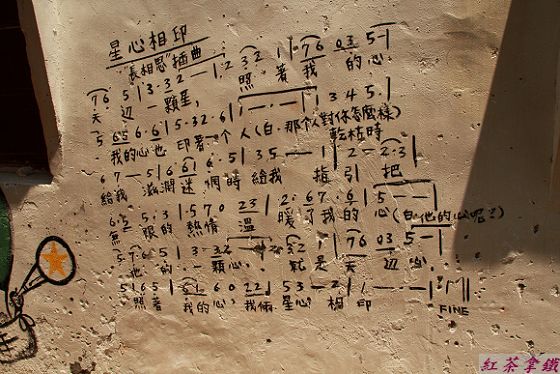 星心相印
"長相思"插曲
76 5 | 3·32 — 1·2 32 1 | 76 03 5 — |
天 边 一 顆星, 照 著 我 的 心
5 65 6·6 | 5·32·6 | 1 — · — | 1 3 4 5 |
我的心也 印著一个 人(白·那个人對你怎麼樣) 乾枯時
6 7 — 5 | 6 61 6· 5 | 3 5 — 1 | 2 — 2·3 |
給我 滋潤 迷 惘時 給我 指 引 把
6·2 5·3 | 5 7 0 23 | 2· 67 6 | 5 — — |
無 限的 熱情 溫 暖了我的 心(白他的心呢?)
5 76 5 | 3·32 — 32 1 | 76 03 5 — |
他 的 一 顆心, 就 是 天 边 心.
5165 | 516 0 22 | 53 — 2 | 1 — — — |
照著 我的心, 我倆 星心 相 印
FINE
紅茶拿鐵